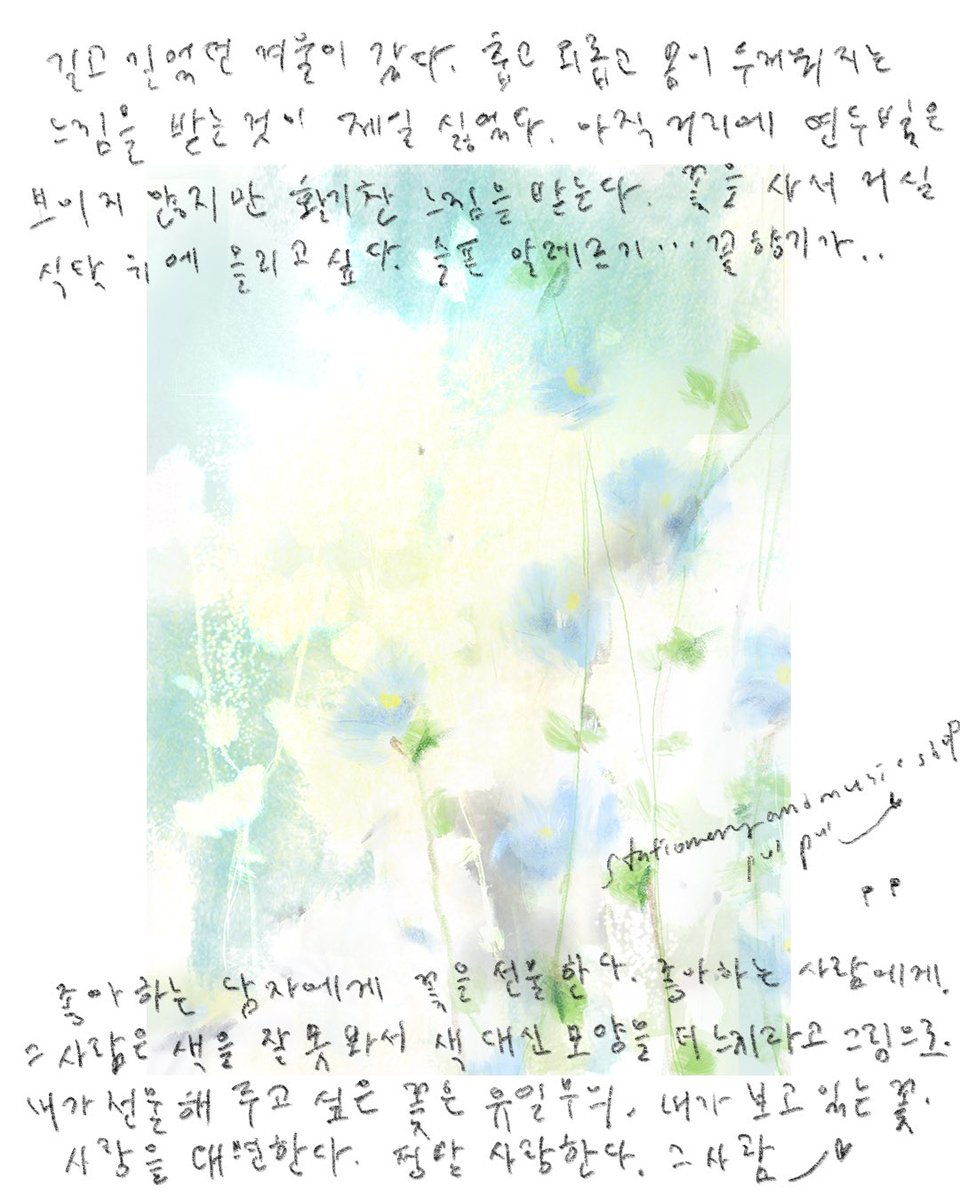 길고 길었던 겨울이 갔다. 춥고 외롭고 몸이 무거워지는
느낌을 받는것이 제일 싫었다. 아직 거리에 연두빛은
보이지 않지만 활기찬 느낌을 받는다. 꽃을 사서 거실
식탁 위에 올리고 싶다. 슬픈 알레르기... 꽃향기가..
stationery and music shop
pui pui
P P
좋아하는 남자에게 꽃을 선물한다. 좋아하는 사람에게.
그 사람은 색을 잘 못 봐서 색 대신 모양을 더 느끼라고 그림으로.
내가 선물해 주고 싶은 꽃은 유일무의, 내가 보고 있는 꽃.
사랑을 대변한다. 평안 사랑한다. 그 사람